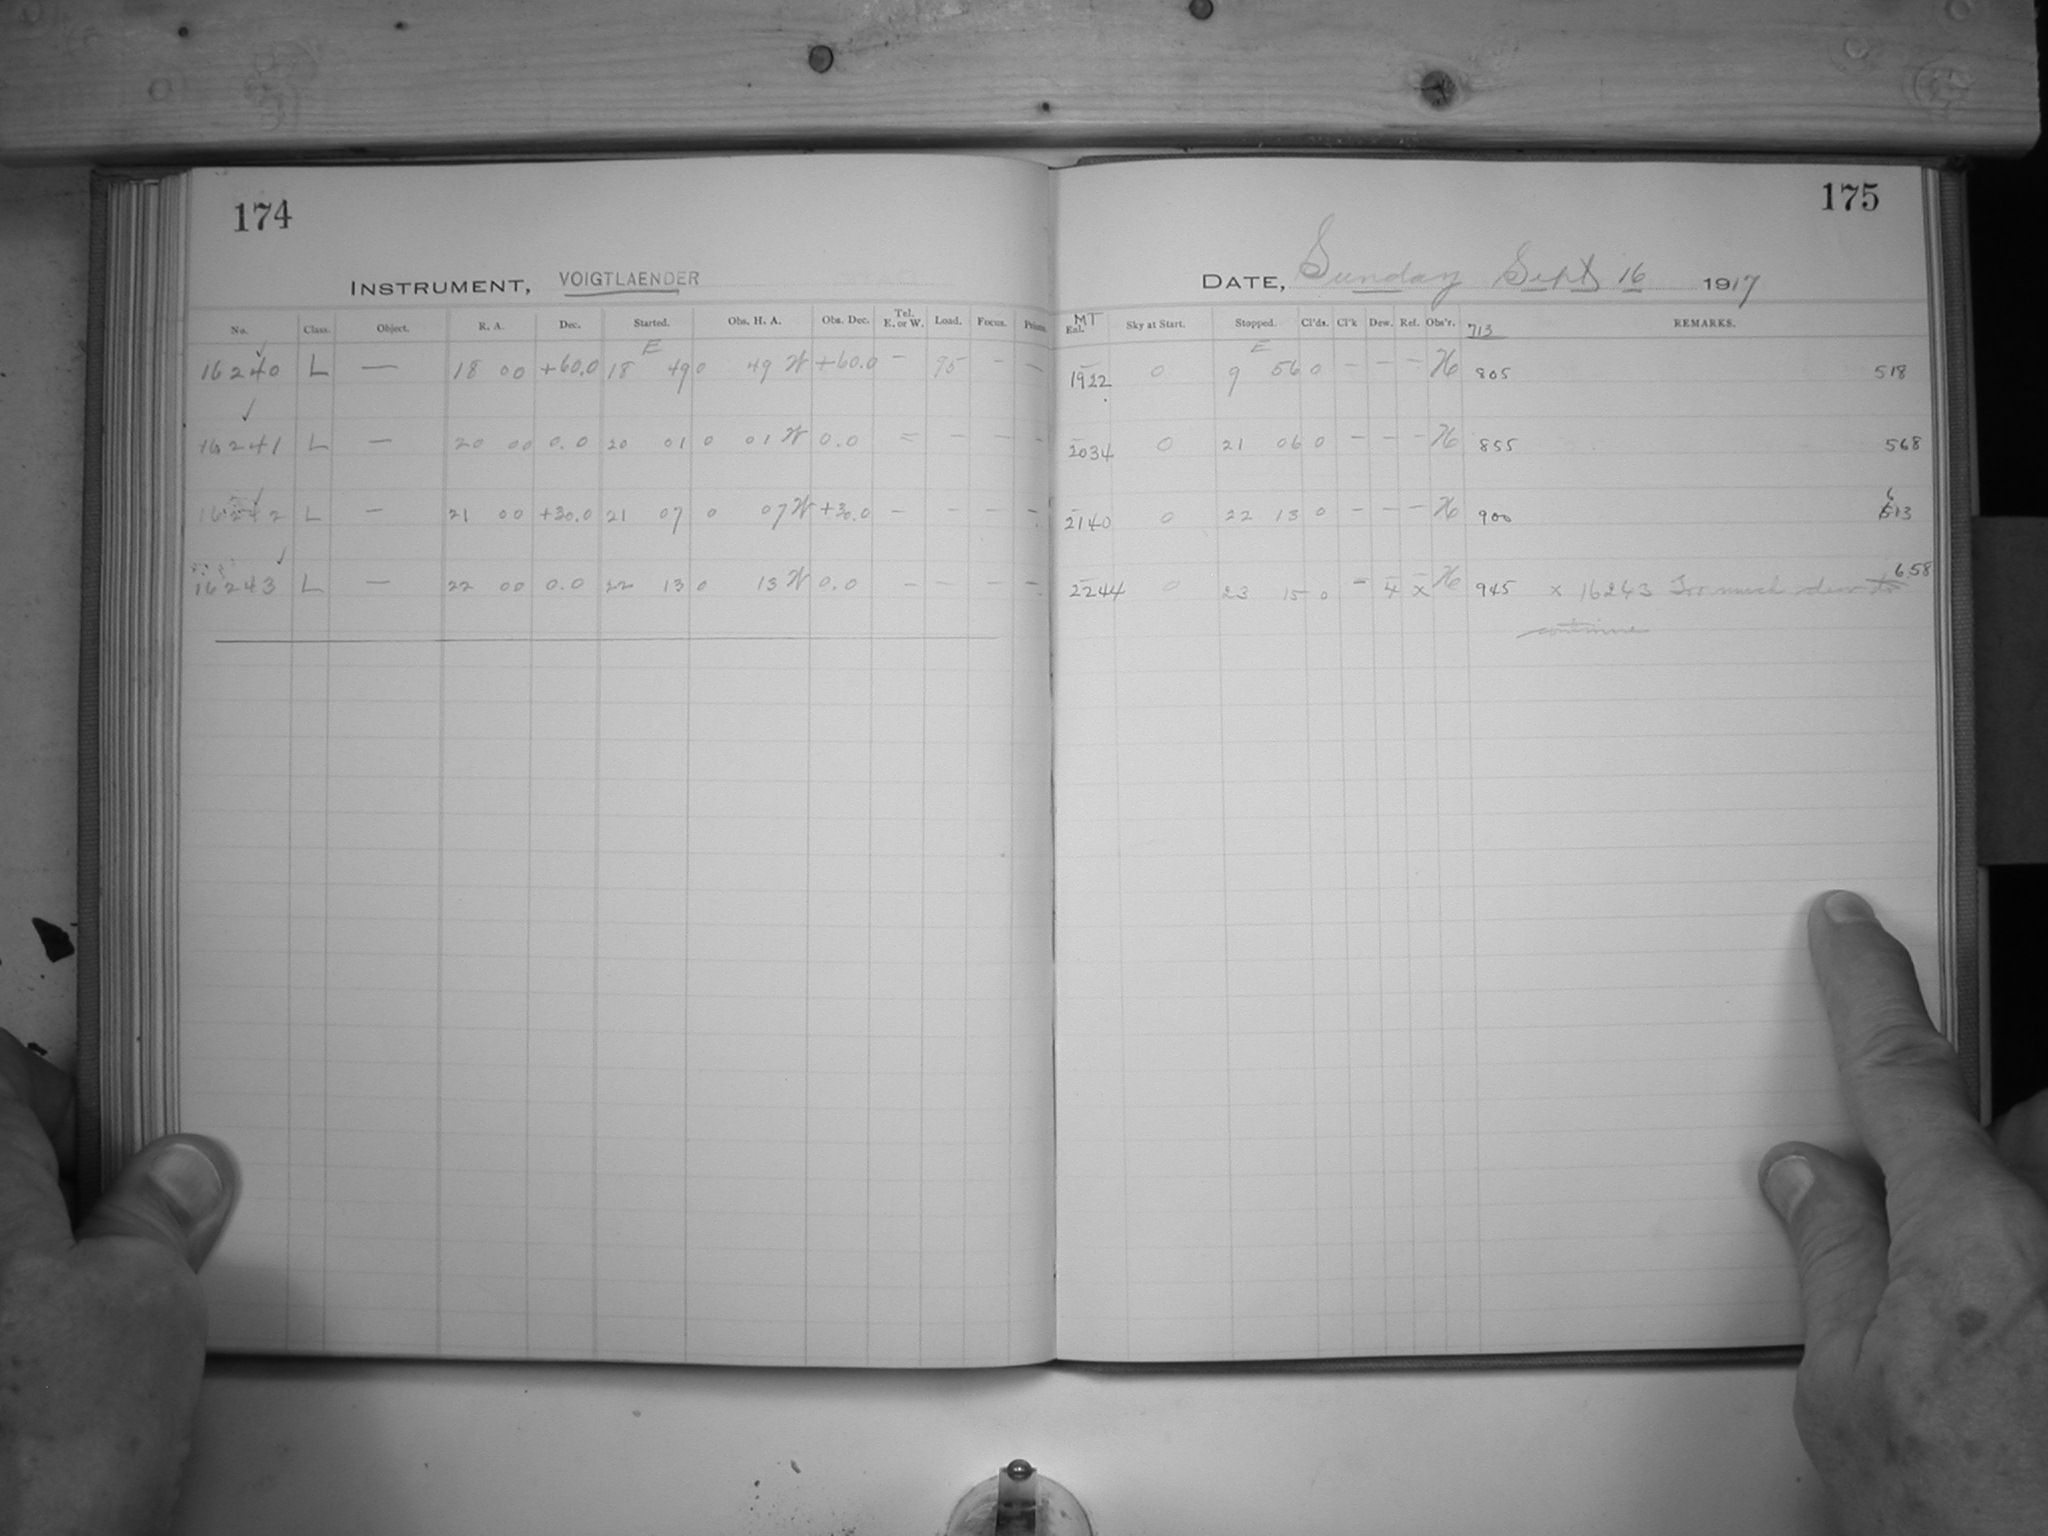 174
INSTRUMENT, VOIGTLAENDER
No. Class. Object. R. A. Dec. Started. Obs. H. A. Obs. Dec. Tel. E. or W. Load. Focus. Prism.
E
16240 L — 18 00 +60.0 18 49 0 49 W +60.0 — 95 — —
16241 L — 20 00 0.0 20 01 0 01 W 0.0 = — — -
16242 L — 21 00 +30.0 21 07 0 07 W +30.0 - - - -
16243 L — 22 00 0.0 22 13 0 13 W 0.0 - - - -
175
DATE, Sunday Sept 16 1917
MT
Sky at Start. Stopped. Cl'ds. Cl'k Dew. Ref. Obs'r. 713 REMARKS.
E
1922 0 9 56 0 - - - H 805 518
2034 0 21 06 0 - - - H 855 568
2140 0 22 13 0 - - - H 900 613
2244 0 23 15 0 - 4 x H 945 x 16243 Too much dew to 658
continue